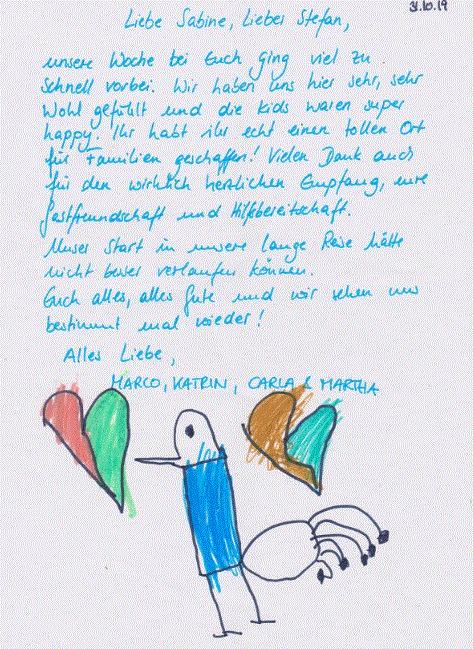 31.10.19
Liebe Sabine, Lieber Stefan,
unsere Woche bei Euch ging viel zu
schnell vorbei. Wir haben uns hier sehr, sehr
wohl gefühlt und die Kids waren super
happy. Ihr habt hier echt einen tollen Ort
für Familien geschaffen! Vielen Dank auch
für den wirklich herzlichen Empfang, eure
Gastfreundschaft und Hilfsbereitschaft.
Unser Start in unsere lange Reise hätte
nicht besser verlaufen können.
Euch alles, alles Gute und wir sehen uns
bestimmt mal wieder!
Alles Liebe,
MARCO, KATRIN, CARLA & MARTHA